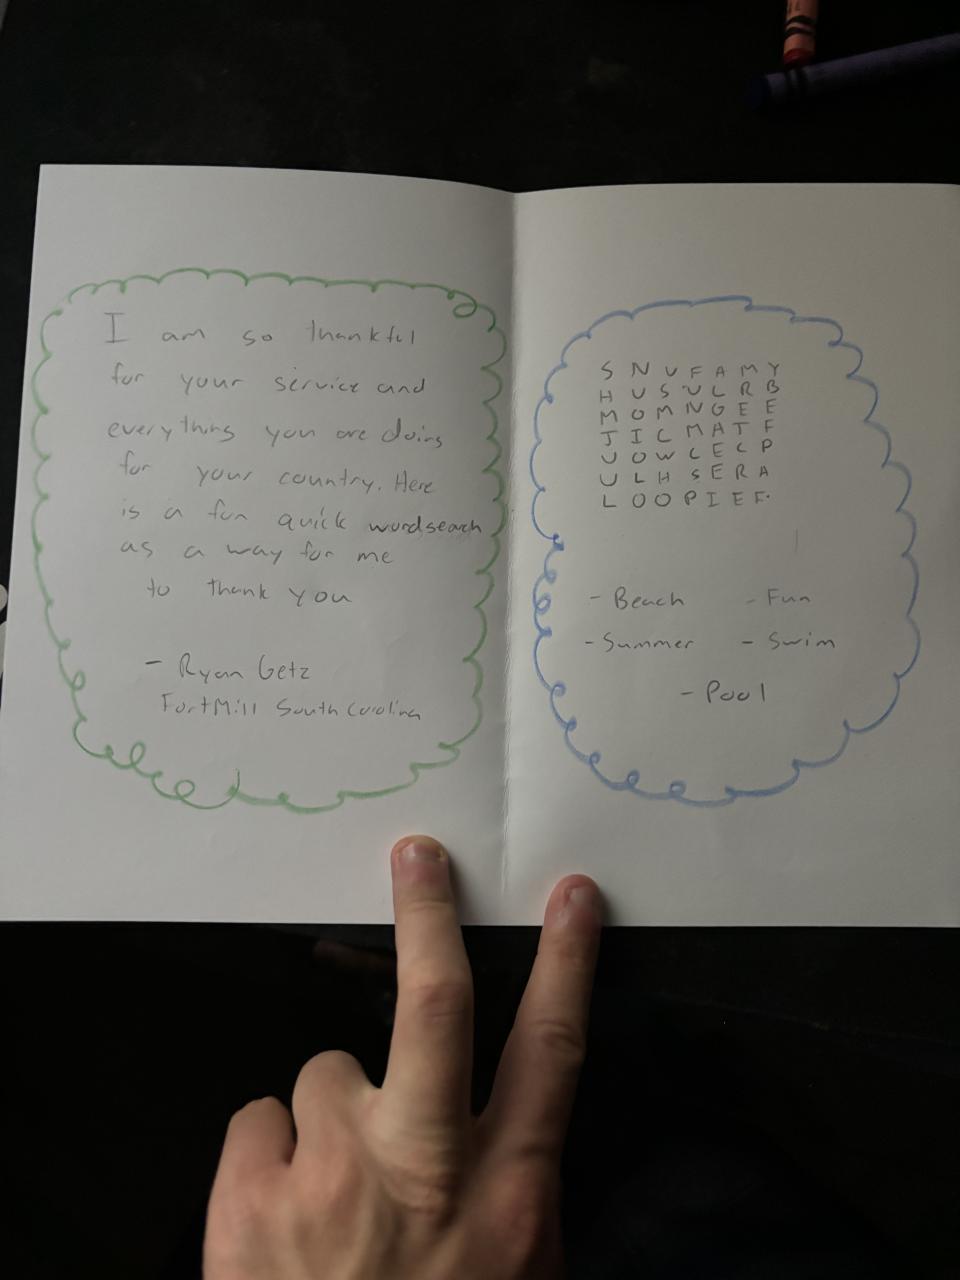 I am so thankful
for your service and
everything you are doing
for your country. Here
is a fun quick wordsearch
as a way for me
to thank you
- Ryan Getz
Fort Mill South Carolina
S N U F A M Y
H U S U L R B
M O M N G E E
J I C M A T F
U O W C E C P
U L H S E R A
L O O P I E F
- Beach - Fun
- Summer - Swim
- Pool